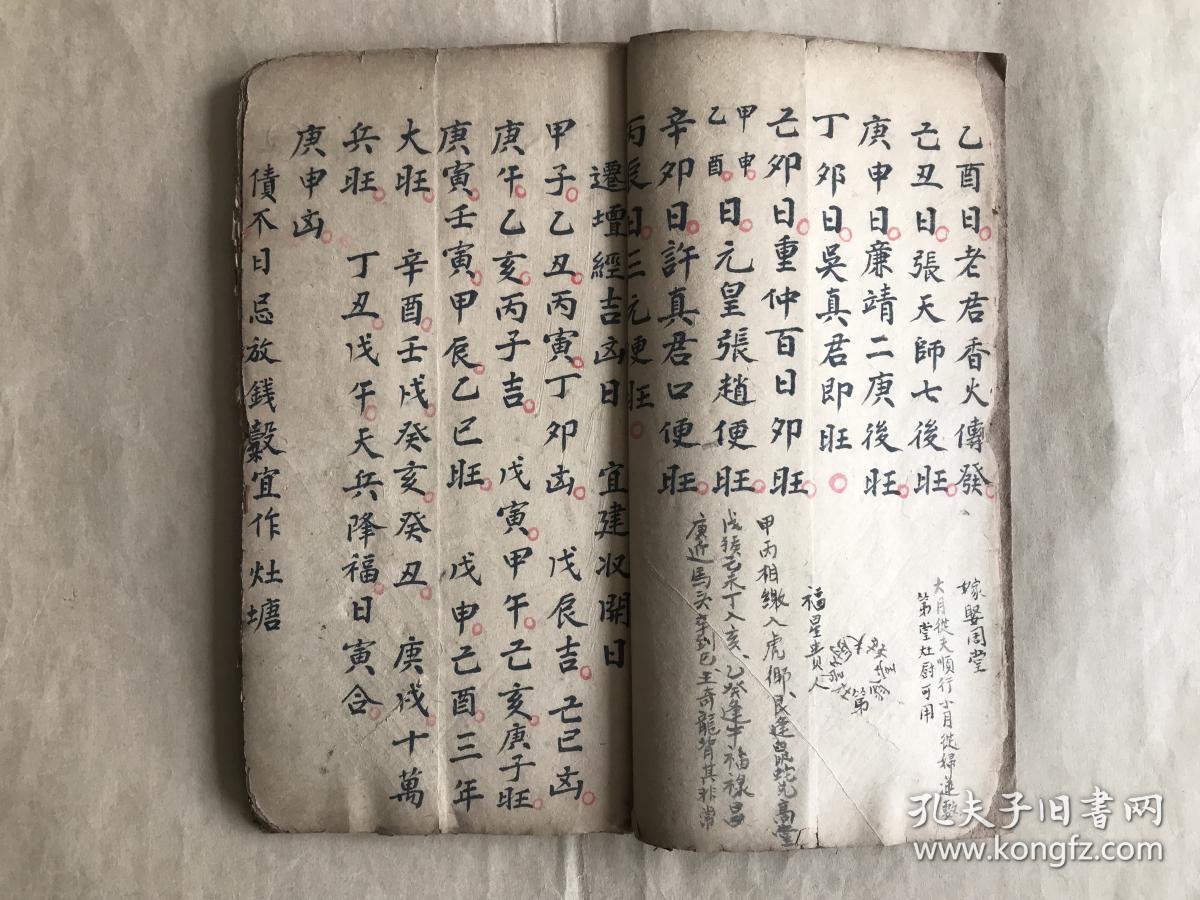 乙酉日老君香火傳發
己丑日張天師七後旺
庚申日廉靖二庚後旺
丁卯日吳真君即旺
己卯日重仲百日卯旺
甲申乙酉日元皇張趙便旺
辛卯日許真君口便旺
丙辰日三元便旺
嫁娶周堂
大月從夫順行小月從婦逆數
第堂灶厨可用
第
福星貴人
甲丙相繳入虎鄉
乙癸逢牛福祿昌
遷壇經吉凶日 宜建收開日
甲子乙丑丙寅丁卯凶 戊辰吉 己巳凶
庚午乙亥丙子吉 戊寅甲午己亥庚子旺
庚寅壬寅甲辰乙巳旺 戊申己酉三年
大旺 辛酉壬戌癸亥癸丑 庚戌十萬
兵旺 丁丑戊午天兵降福日寅合
庚申凶
債不日忌放錢穀宜作灶塘
孔夫子旧书网
www.kongfz.com